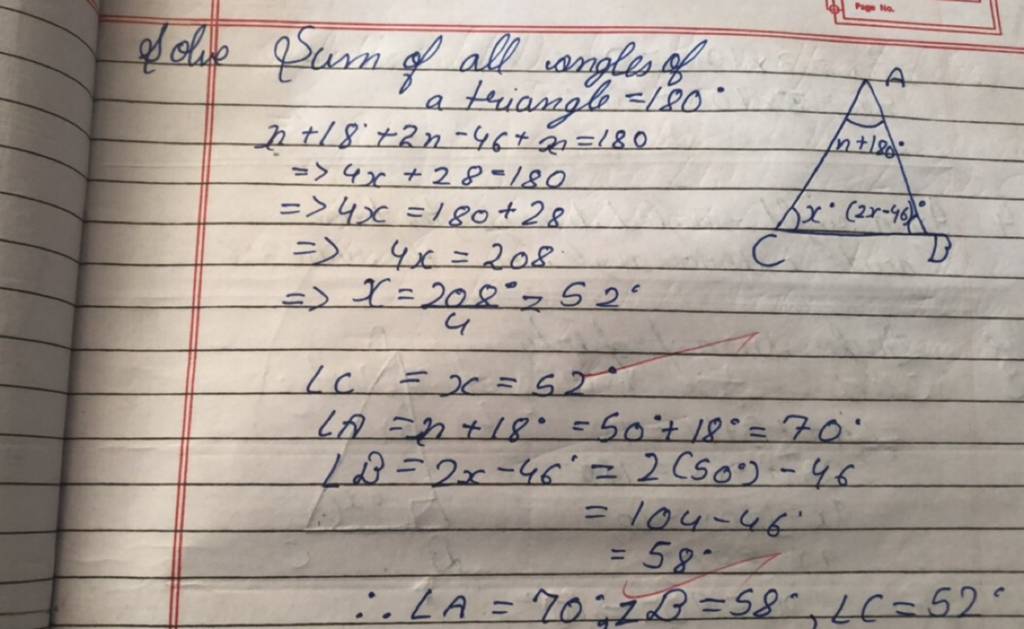 Page No.
Solve Sum of all angles of
a triangle = 180°
x + 18° + 2x - 46 + x = 180
=> 4x + 28 = 180
=> 4x = 180 + 28
=> 4x = 208
=> x = 208° = 52°
4
A
n + 180°
x° (2x - 46)°
C B
∠C = x = 52°
∠A = x + 18° = 50° + 18° = 70°
∠B = 2x - 46° = 2(50°) - 46
= 104 - 46°
= 58°
∴ ∠A = 70°, ∠B = 58°, ∠C = 52°